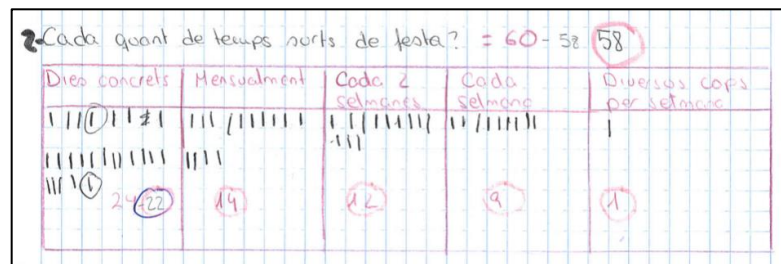 2. Cada quant de temps surts de festa? = 60 - 58 58
Dies concrets Mensualment Cada 2 setmanes Cada setmana Diversos cops per setmana
24 22 14 12 9 1